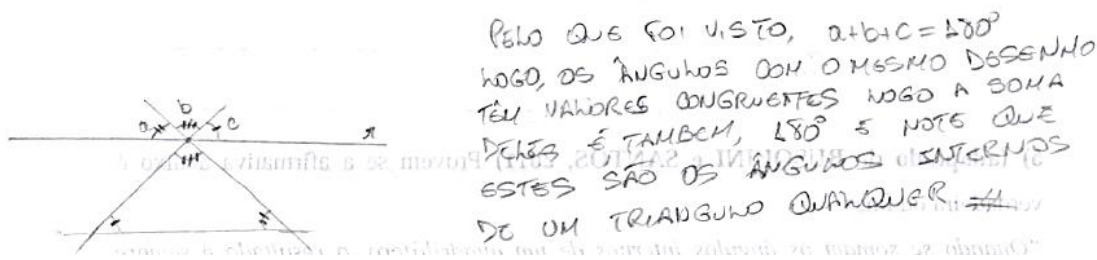 a b c
r
PELO QUE FOI VISTO, a+b+c = 180°
LOGO, OS ÂNGULOS COM O MESMO DESENHO
TÊM VALORES CONGRUENTES LOGO A SOMA
DELES É TAMBEM, 180° E NOTE QUE
ESTES SÃO OS ÂNGULOS INTERNOS
DE UM TRIANGULO QUALQUER